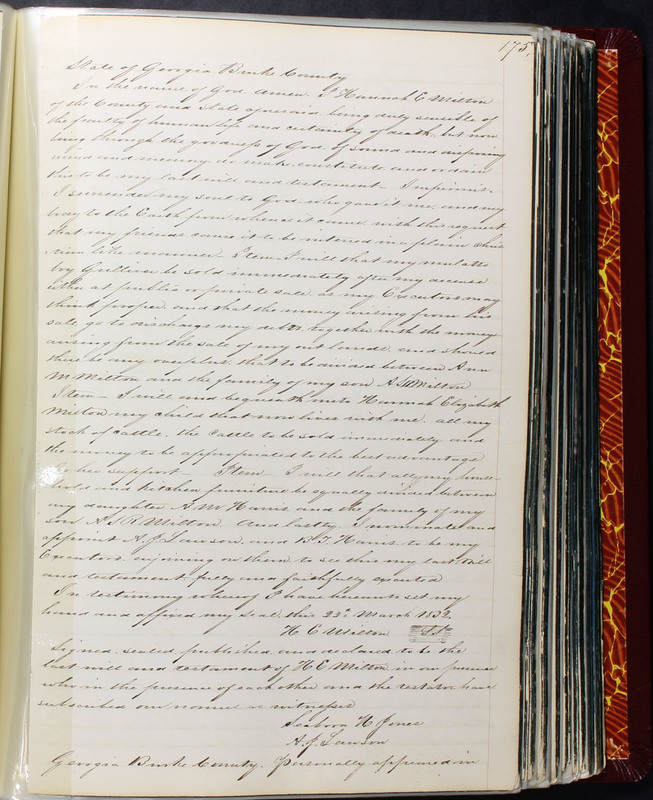 175,
State of Georgia Burke County
In the name of God. Amen. I Hannah E Milton
of the County and State aforesaid being duly sensible of
the frailty of human life and certainty of death, but now
being through the goodness of God, of sound and disposing
mind and memory do make constitute and ordain
this to be my last will and testament - Imprimis.
I surrender my soul to God who gave it me, and my
body to the Earth from whence it came, with this request
that my friends cause it to be interred in a plain Chris
tian like manner - Item - I will that my mulatto
boy Gulliver be sold immediately after my decease
either at public or private sale, as my Executors may
think proper, and that the money arising from his
sale, go to discharge my debts, together with the money
arising from the sale of my lands, and should
there be any overplus, that to be divided between Ann
M Milton and the family of my son A Milton
Item - I will and bequeath unto Hannah Elizabeth
Milton my child that now lives with me, all my
stock of cattle, the cattle to be sold immediately and
the money to be appropriated to the best advantage
to her support - Item - I will that all my house-
hold and kitchen furniture be equally divided between
my daughter A. M Harris and the family of my
son A S R Milton. And lastly, I nominate and
appoint A. J Lawson, and B. T. Harris, to be my
Executors. enjoining on them to see this my last Will
and testament fully and faithfully executed
In testimony whereof I have hereunto set my
hand and affixed my seal, this 22d March 1832.
H E Milton
Signed, sealed published, and declared to be the
last will and testament of H E Milton in our presence
who in the presence of each other and the testator have
subscribed our names as witnesses
Seaborn H Jones
A. J. Lawson
Georgia Burke County. Personally appeared in